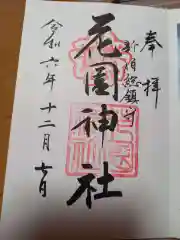 奉拝
新宿総鎮守
花園神社
令和六年十二月七日